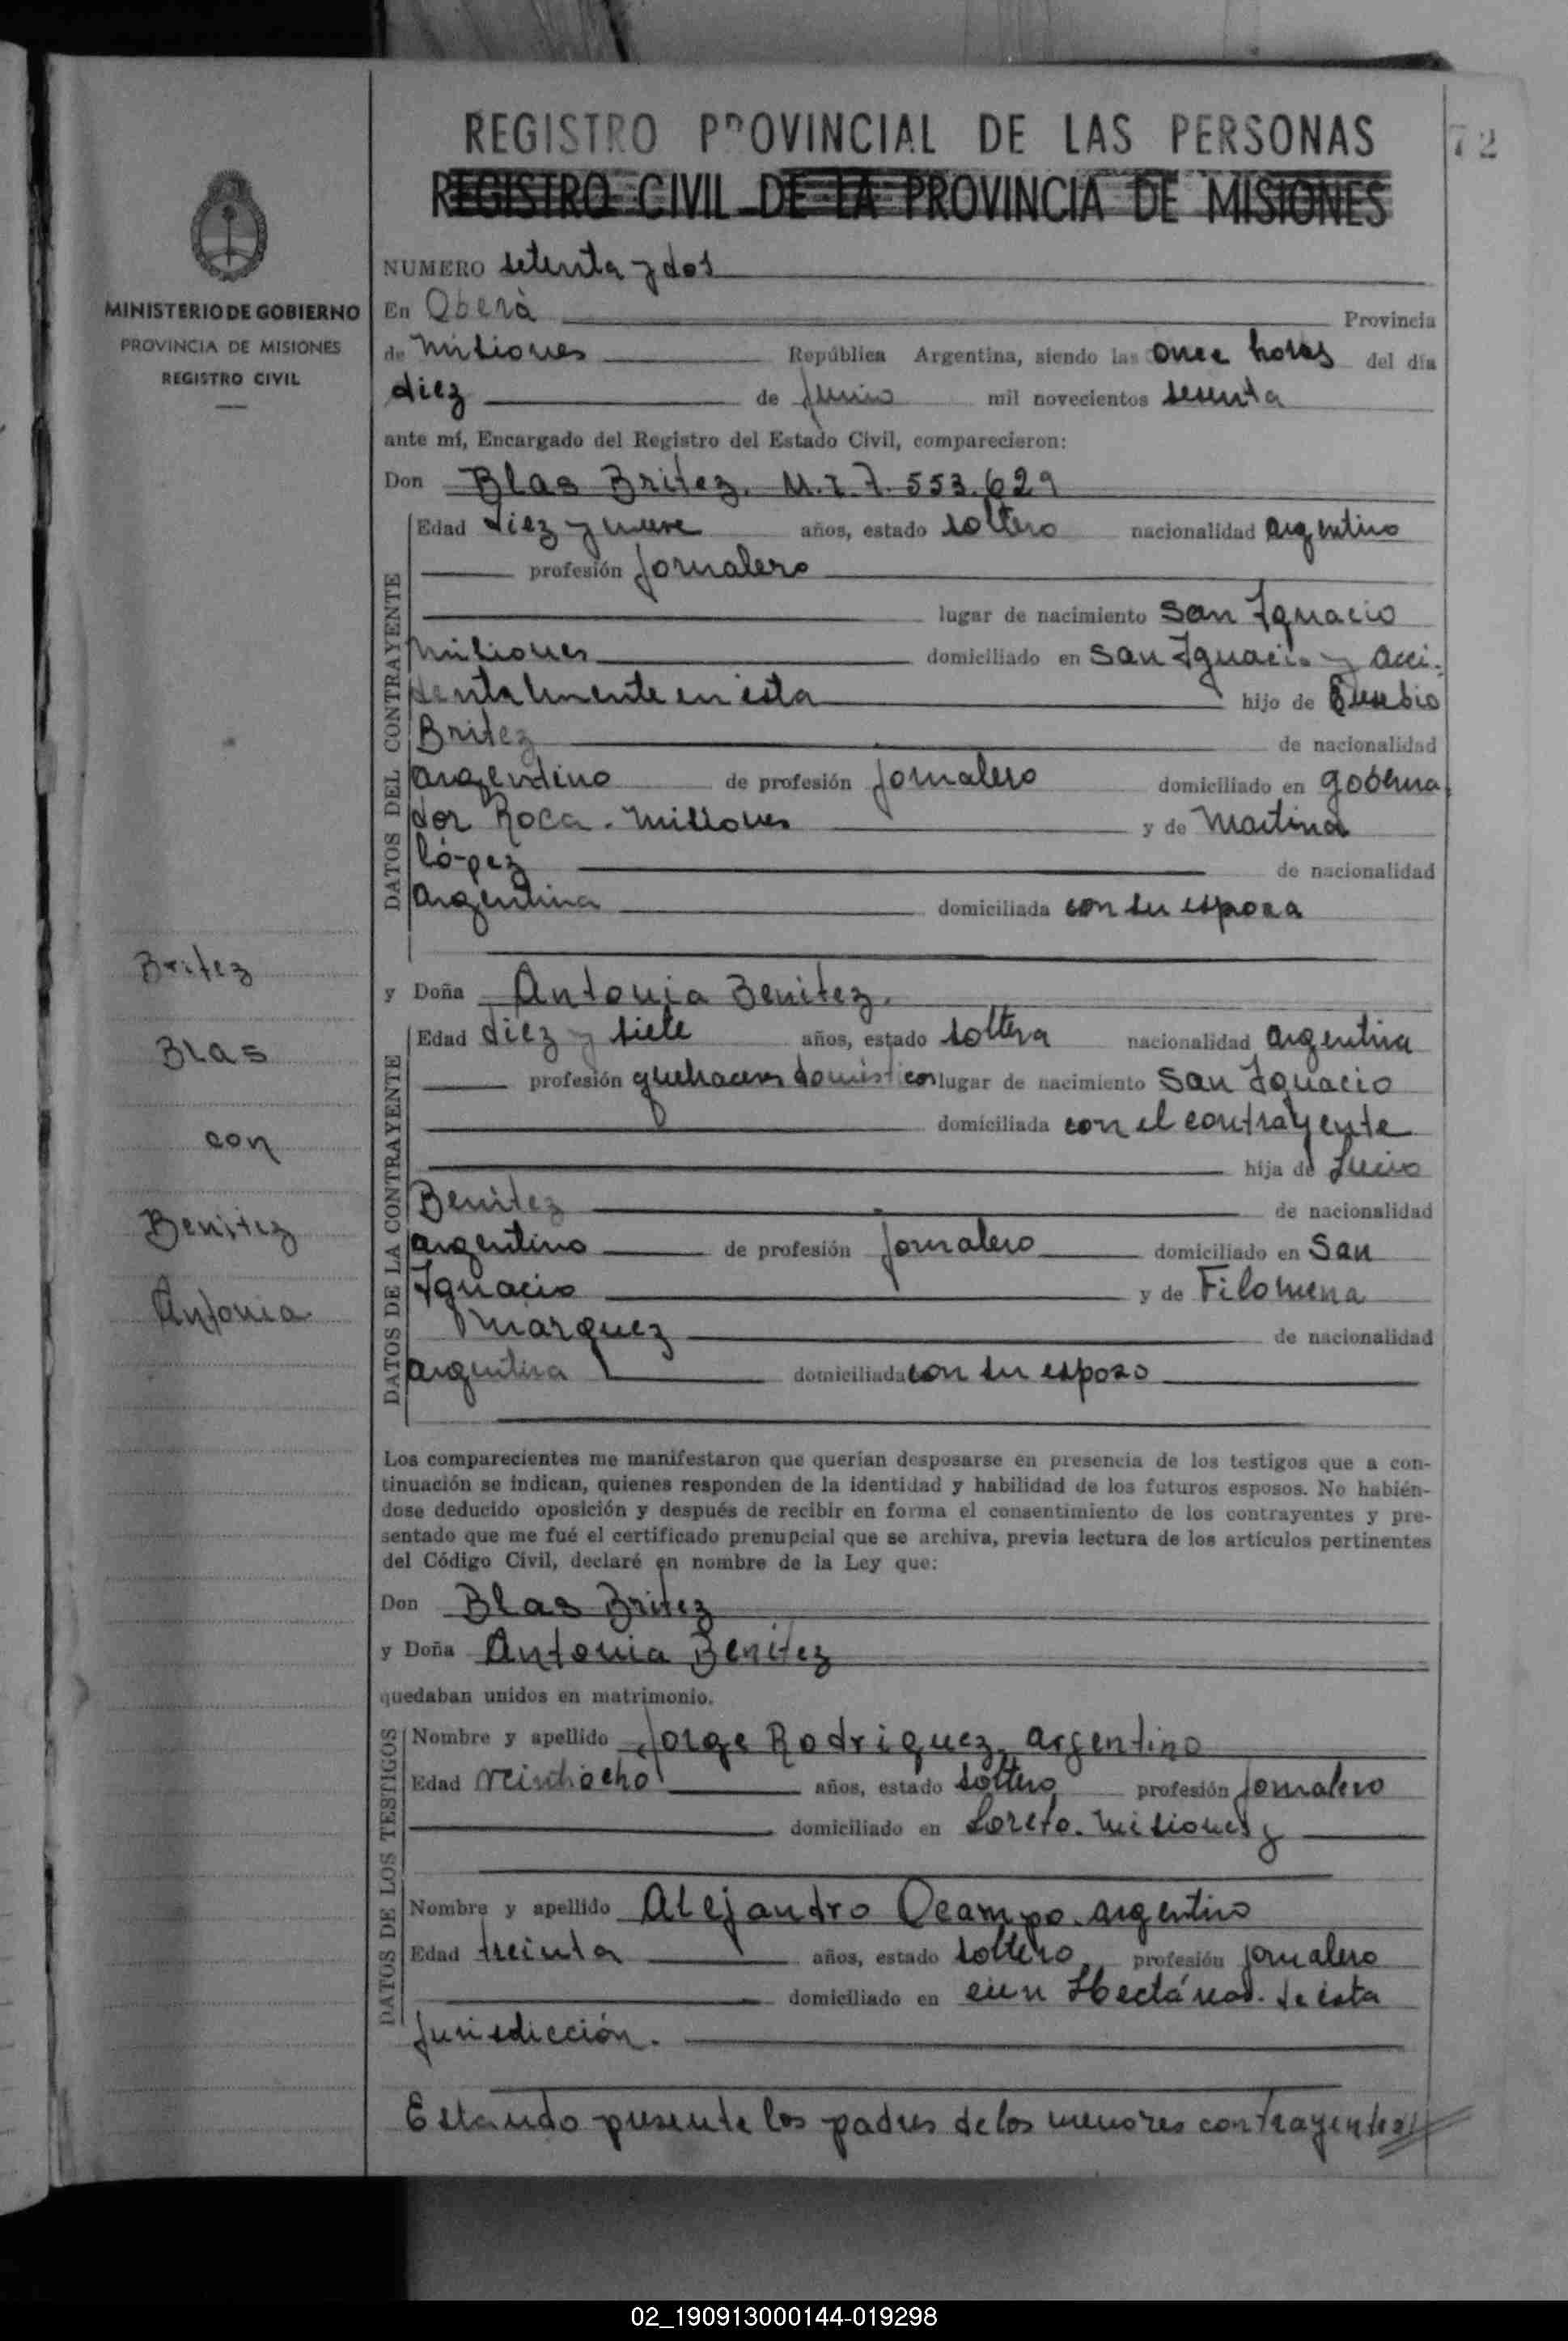 REGISTRO PROVINCIAL DE LAS PERSONAS
72
REGISTRO CIVIL DE LA PROVINCIA DE MISIONES
MINISTERIO DE GOBIERNO
PROVINCIA DE MISIONES
REGISTRO CIVIL
NUMERO setenta y dos
En Oberá Provincia
de Misiones República Argentina, siendo las once horas del día
diez de Junio mil novecientos sesenta
ante mí, Encargado del Registro del Estado Civil, comparecieron:
Don Blas Britez. M.I. 7.553.629
DATOS DEL CONTRAYENTE
Edad diez y nueve años, estado soltero nacionalidad argentino
profesión Jornalero
lugar de nacimiento San Ignacio
Misiones domiciliado en San Ignacio y acci-
dentalmente en esta hijo de Eusebio
Britez de nacionalidad
argentino de profesión Jornalero domiciliado en goberna
dor Roca. Misiones y de Martina
López de nacionalidad
argentina domiciliada con su esposa
y Doña Antonia Benitez.
DATOS DE LA CONTRAYENTE
Edad diez y siete años, estado soltera nacionalidad argentina
profesión quehaceres domésticos lugar de nacimiento San Ignacio
domiciliada con el contrayente
hija de Lucio
Benitez de nacionalidad
argentino de profesión Jornalero domiciliado en San
Ignacio y de Filomena
Marquez de nacionalidad
argentina domiciliada con su esposo
Britez
Blas
con
Benitez
Antonia
Los comparecientes me manifestaron que querían desposarse en presencia de los testigos que a con-
tinuación se indican, quienes responden de la identidad y habilidad de los futuros esposos. No habién-
dose deducido oposición y después de recibir en forma el consentimiento de los contrayentes y pre-
sentado que me fué el certificado prenupcial que se archiva, previa lectura de los artículos pertinentes
del Código Civil, declaré en nombre de la Ley que:
Don Blas Britez
y Doña Antonia Benitez
quedaban unidos en matrimonio.
DATOS DE LOS TESTIGOS
Nombre y apellido Jorge Rodriguez, argentino
Edad veintiocho años, estado soltero profesión Jornalero
domiciliado en Loreto. Misiones y
DATOS DE LOS
Nombre y apellido Alejandro Ocampo. argentino
Edad treinta años, estado soltero, profesión jornalero
domiciliado en cien Hectáreas. de esta
Jurisdicción.
Estando presente los padres de los menores contrayentes
02_190913000144-019298